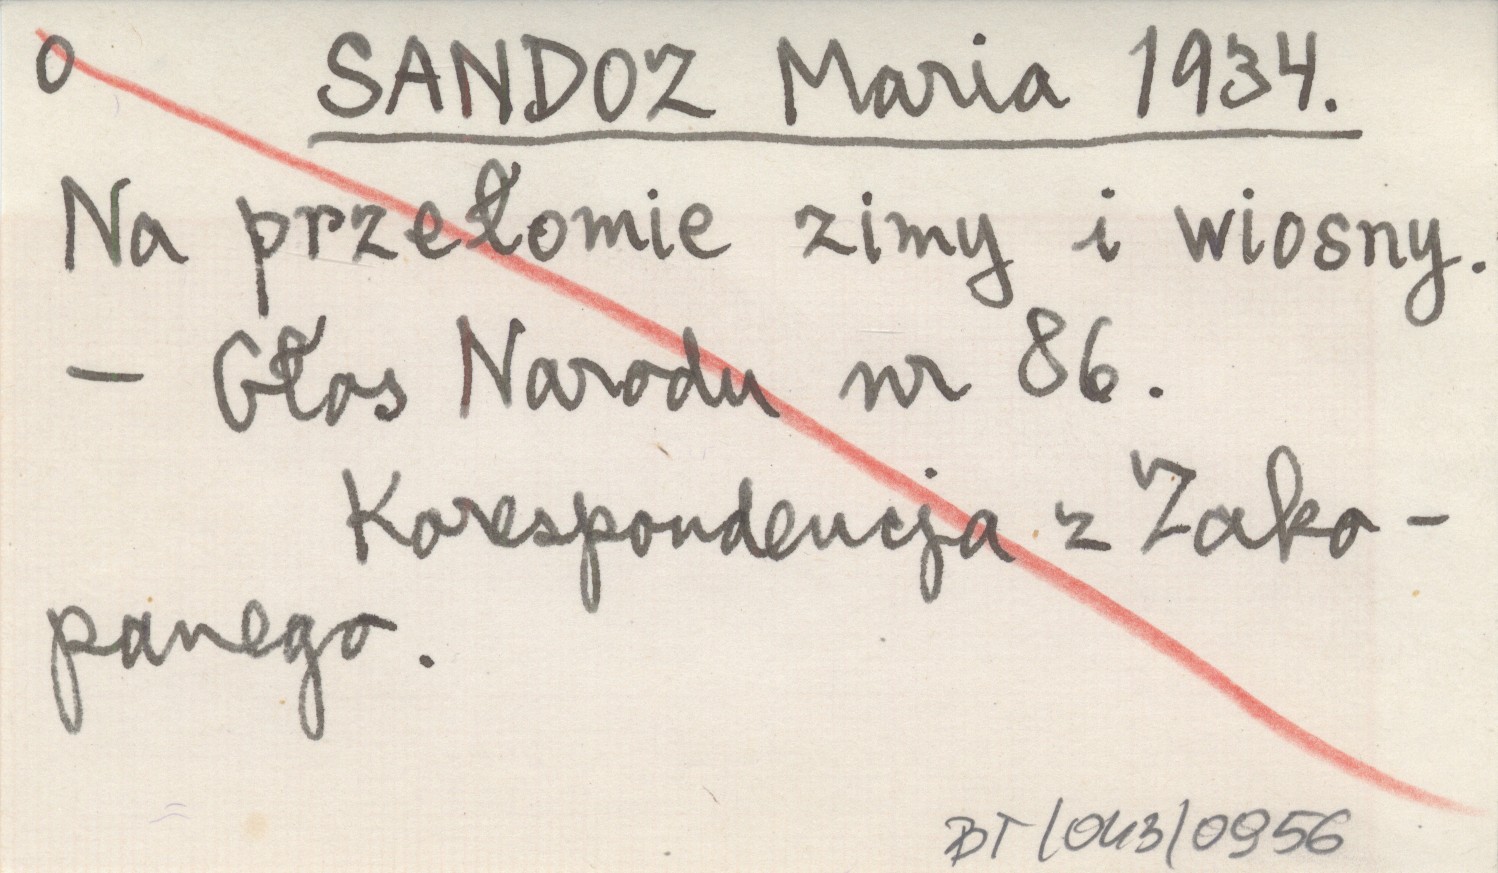 O SANDOZ Maria 1934.
Na przełomie zimy i wiosny.
– Głos Narodu nr 86.
Korespondencja z Zako-
panego.
BT/043/0956